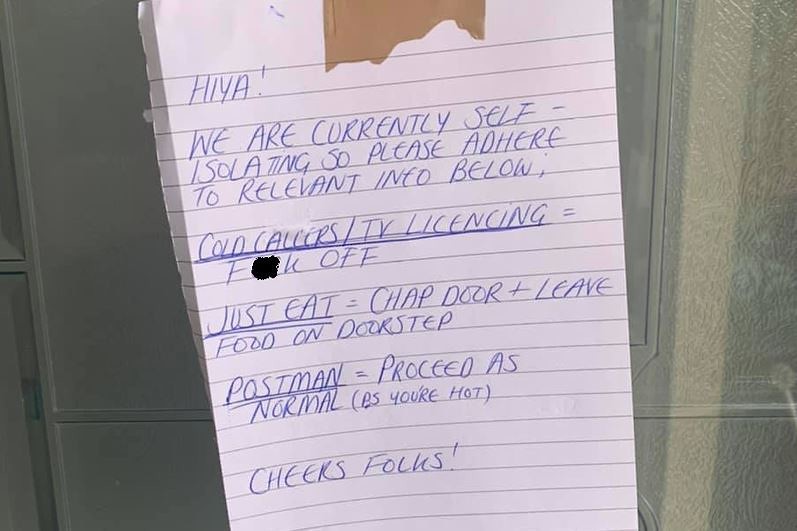 HIYA!
WE ARE CURRENTLY SELF-
ISOLATING, SO PLEASE ADHERE
TO RELEVANT INFO BELOW;
COLD CALLERS/TV LICENCING =
F K OFF
JUST EAT = CHAP DOOR + LEAVE
FOOD ON DOORSTEP
POSTMAN = PROCEED AS
NORMAL (PS YOU'RE HOT)
CHEERS FOLKS!